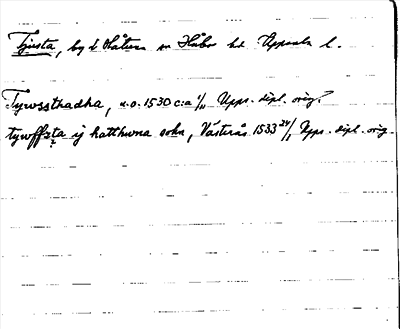 Tjusta, by i Håtuna sn Håbo hd Uppsala l.
Tywssthadha, u.o. 1530 c:a 1/11 Upps. dipl. orig.
tywffzta ij hatthwna sokn, Västerås 1533 24/1 Upps. dipl. orig.